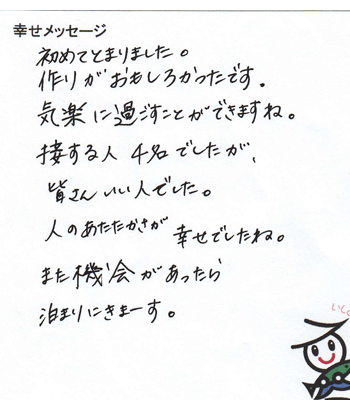 幸せメッセージ
初めてとまりました。
作りがおもしろかったです.
気楽に過ごすことができますね。
接する人 4名でしたが、
皆さんいい人でした。
人のあたたかさが 幸せでしたね。
また機会があったら
泊まりにきまーす。